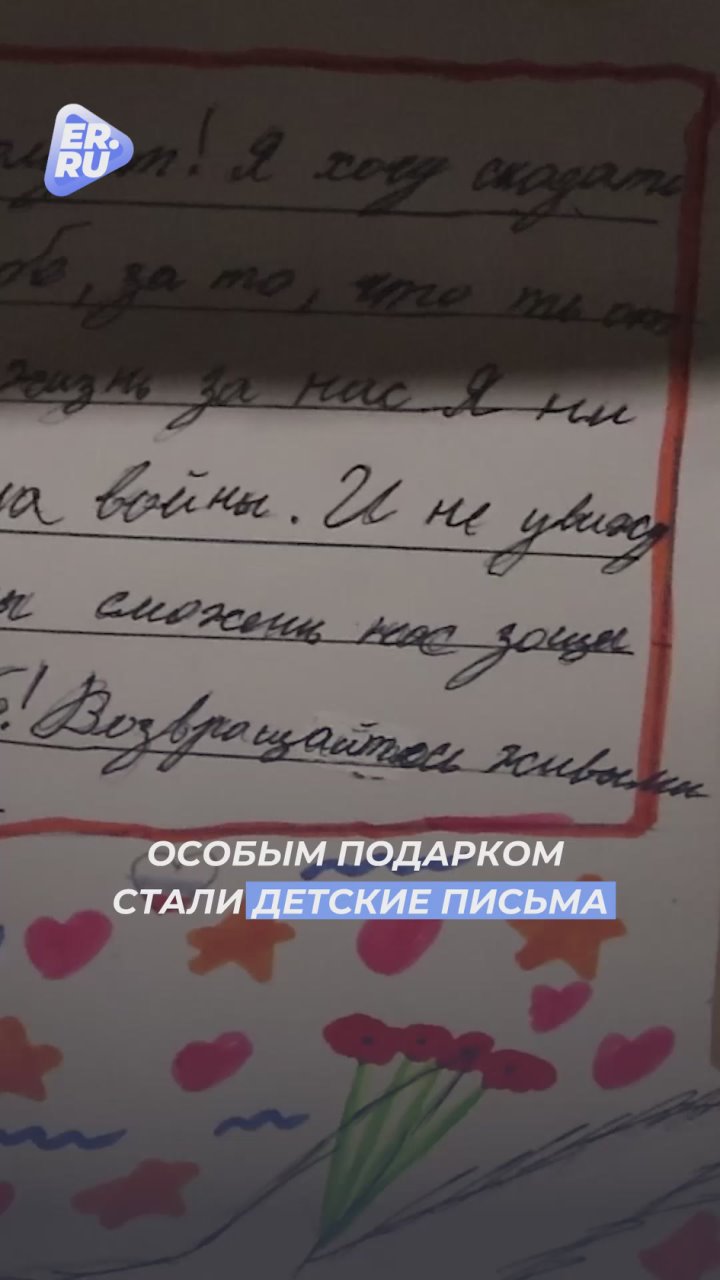 ER.
RU
! Я хочу сказать
, за то, что ты от
жизнь за нас Я ни
войны. И не увижу
сможешь нас защи
! Возвращайтесь живыми
ОСОБЫМ ПОДАРКОМ
СТАЛИ ДЕТСКИЕ ПИСЬМА